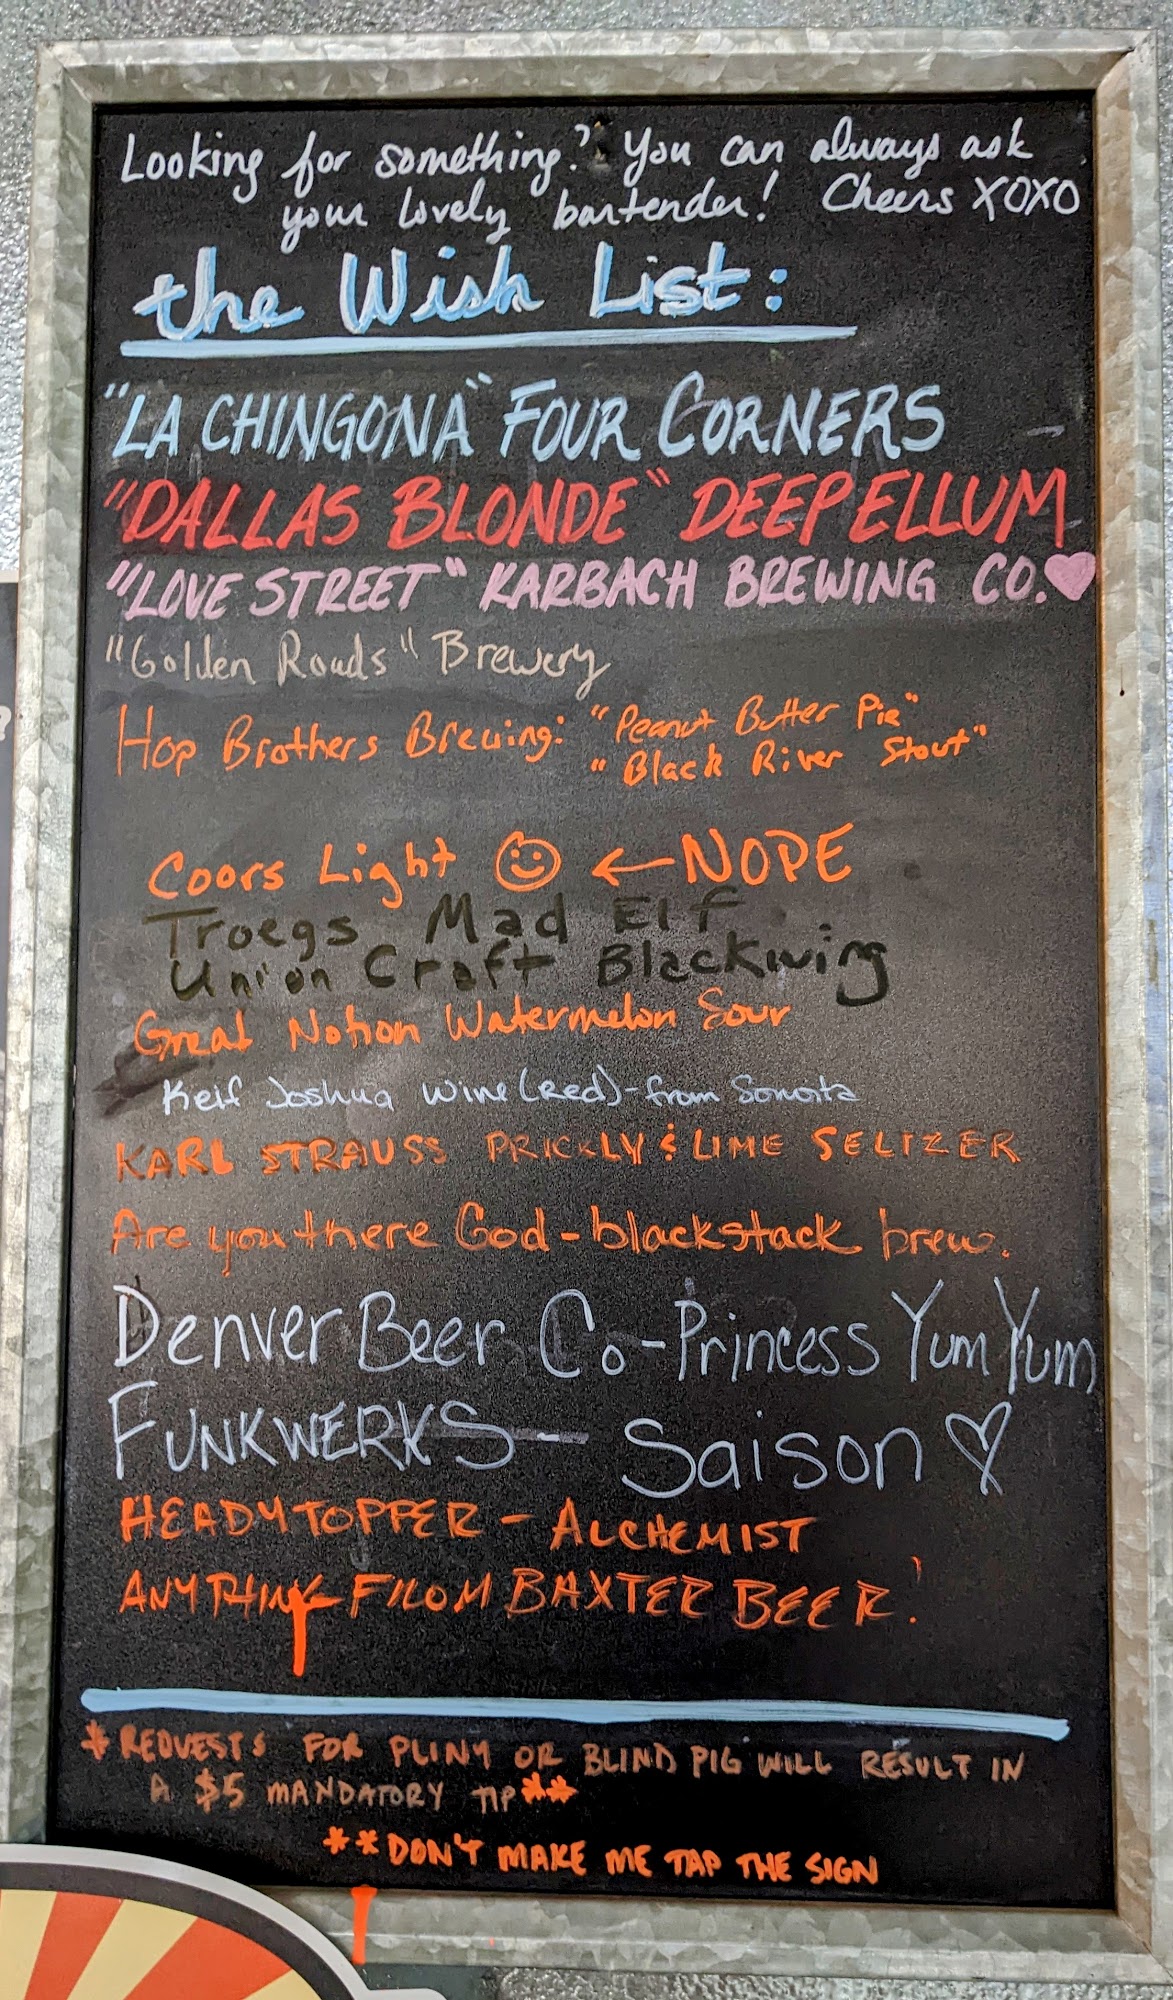 Looking for something? You can always ask
your lovely bartender! Cheers XOXO
the Wish List:
"LA CHINGONA" FOUR CORNERS
"DALLAS BLONDE" DEEP ELLUM
"LOVE STREET" KARBACH BREWING CO.
"Golden Roads" Brewery
Hop Brothers Brewing: "Peanut Butter Pie"
"Black River Stout"
Coors Light ☺ ← NOPE
Troegs Mad Elf
Union Craft Blackwing
Great Notion Watermelon Sour
Keif Joshua Wine (Red) - from Sonoita
KARL STRAUSS PRICKLY & LIME SELTZER
Are you there God - blackstack brew.
Denver Beer Co - Princess Yum Yum
FUNKWERKS - Saison ♡
HEADY TOPPER - ALCHEMIST
ANYTHING FROM BAXTER BEER!
* REQUESTS FOR PLINY OR BLIND PIG WILL RESULT IN
A $5 MANDATORY TIP **
** DON'T MAKE ME TAP THE SIGN